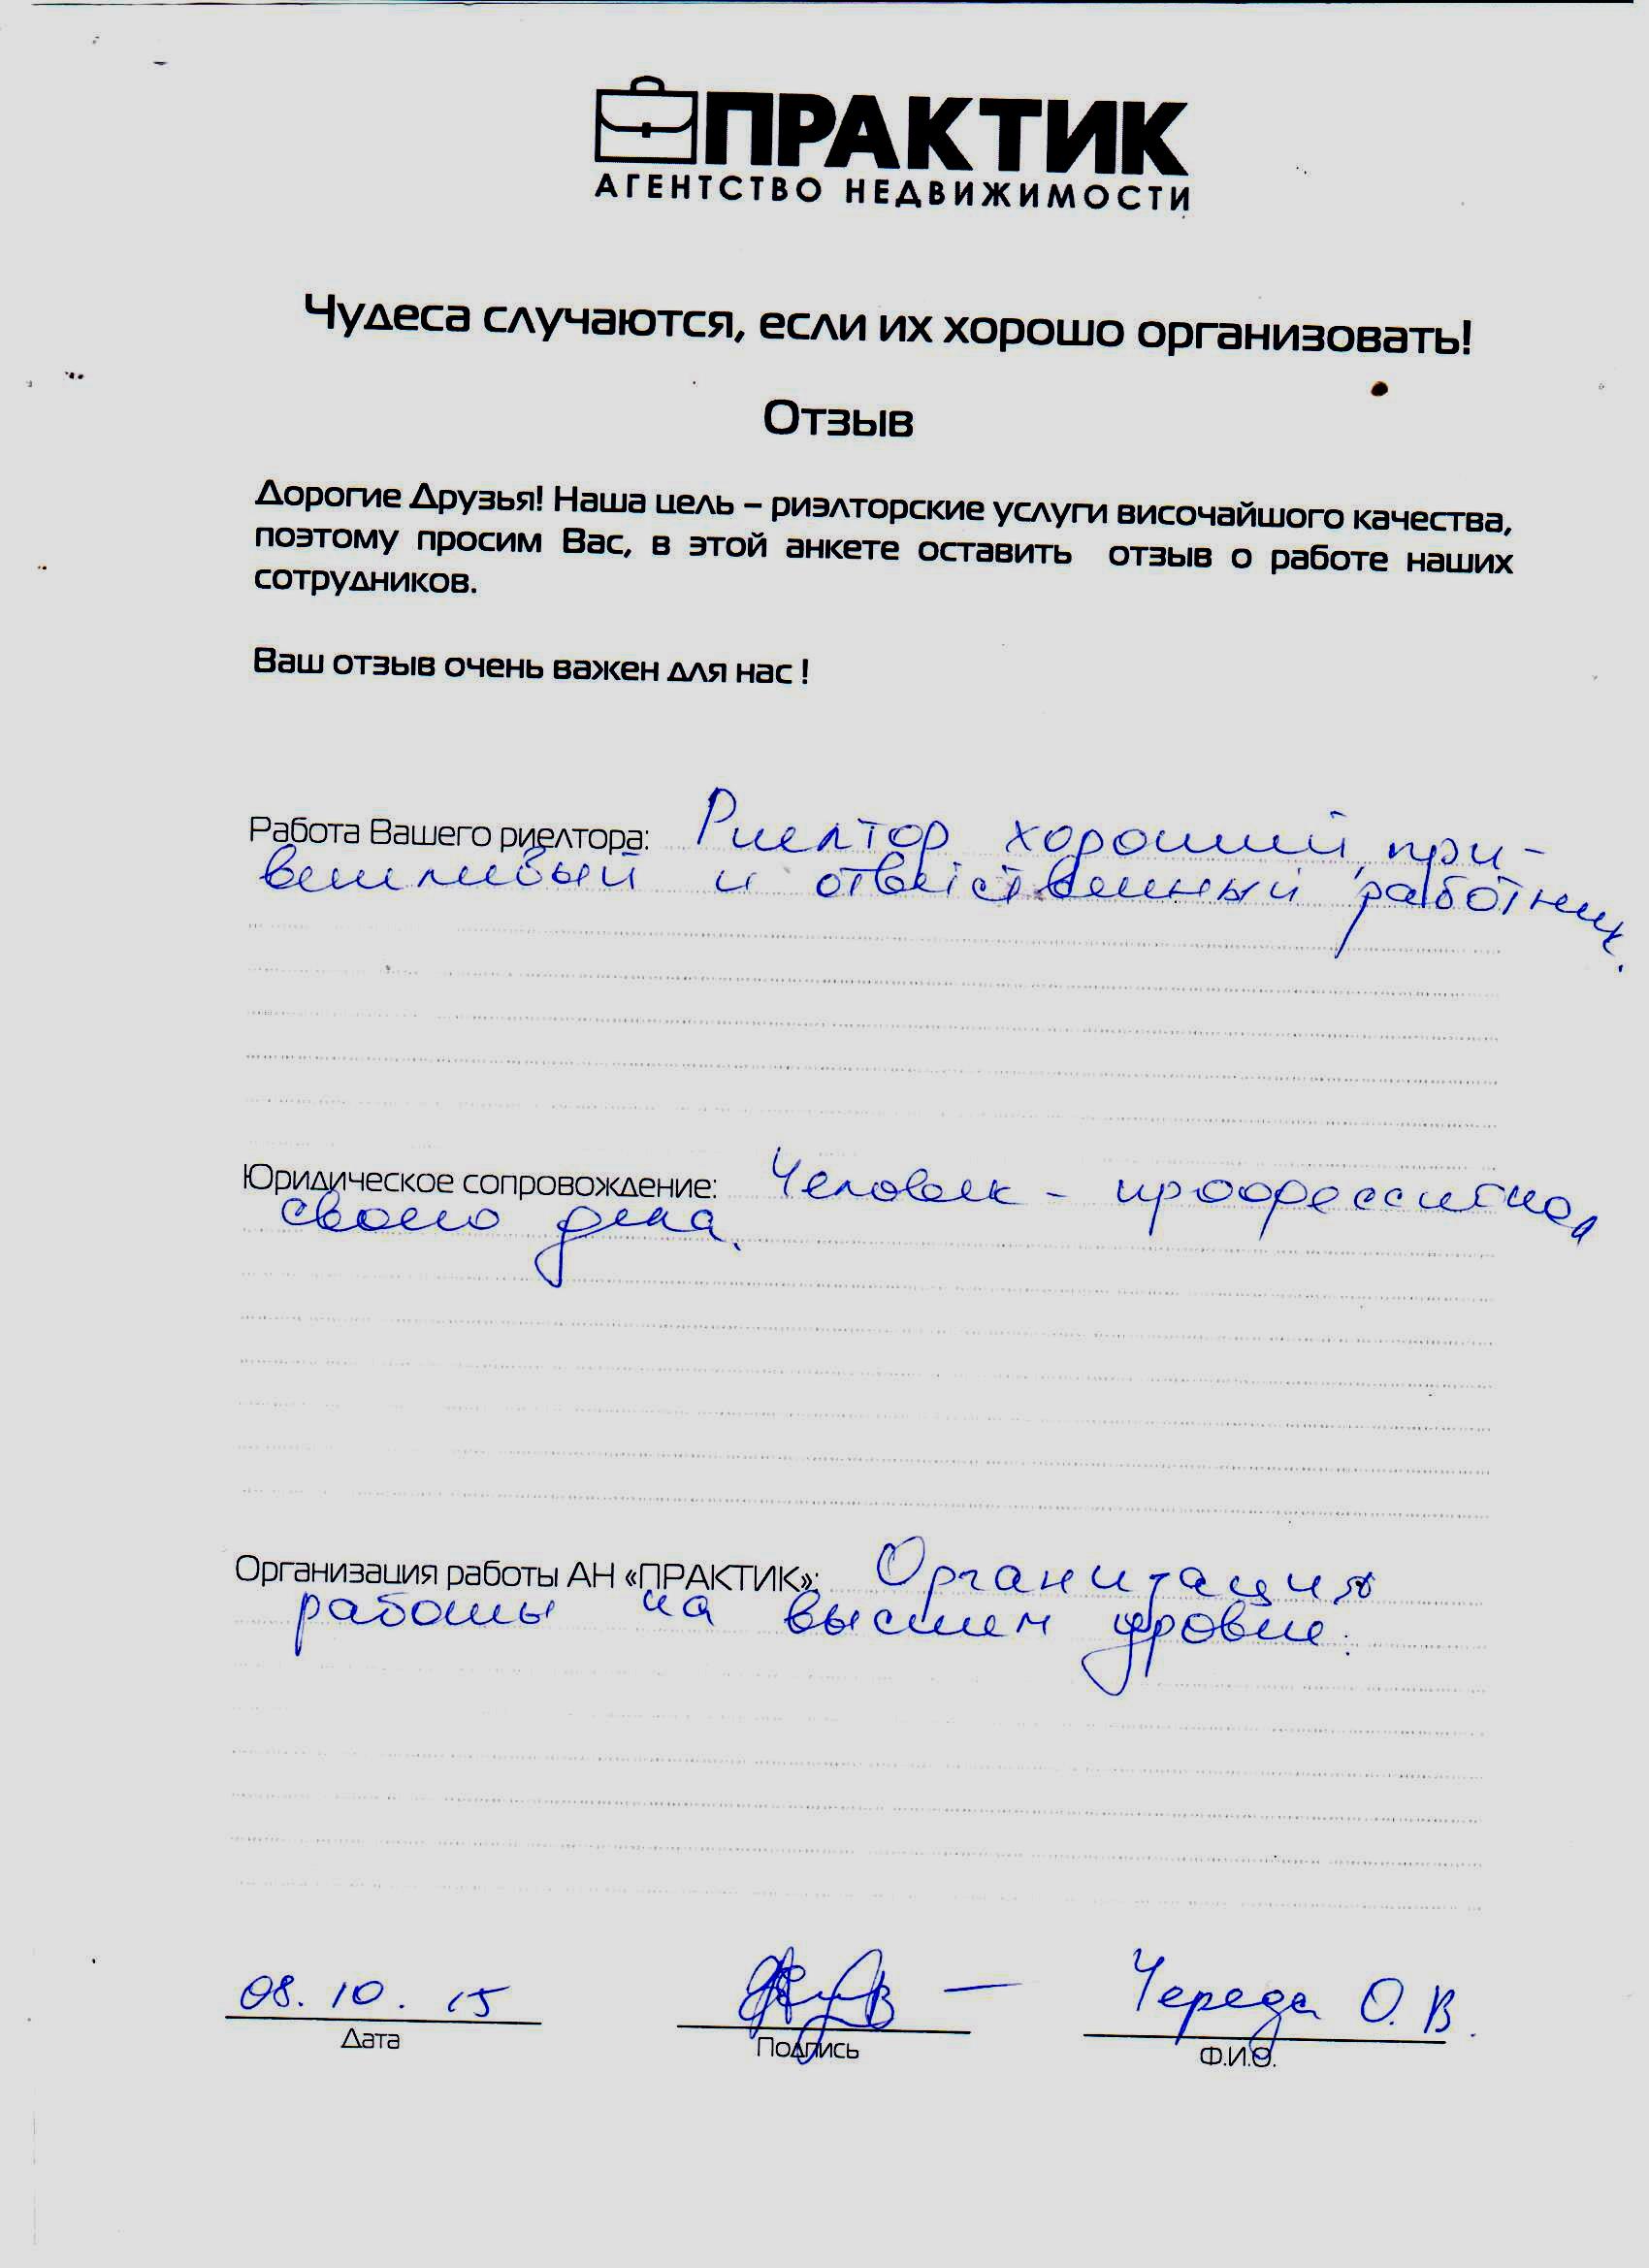 ПРАКТИК
АГЕНТСТВО НЕДВИЖИМОСТИ
Чудеса случаются, если их хорошо организовать!
Отзыв
Дорогие Друзья! Наша цель – риэлторские услуги височайшого качества,
поэтому просим Вас, в этой анкете оставить отзыв о работе наших
сотрудников.
Ваш отзыв очень важен для нас !
Работа Вашего риелтора: Риелтор хороший, при-
вешливый и ответственный работник.
Юридическое сопровождение: Человек - профессионал
своего дела.
Организация работы АН «ПРАКТИК»: Организация
работы на высшем уровне.
08.10.15 Череда О.В.
Дата Подпись Ф.И.О.